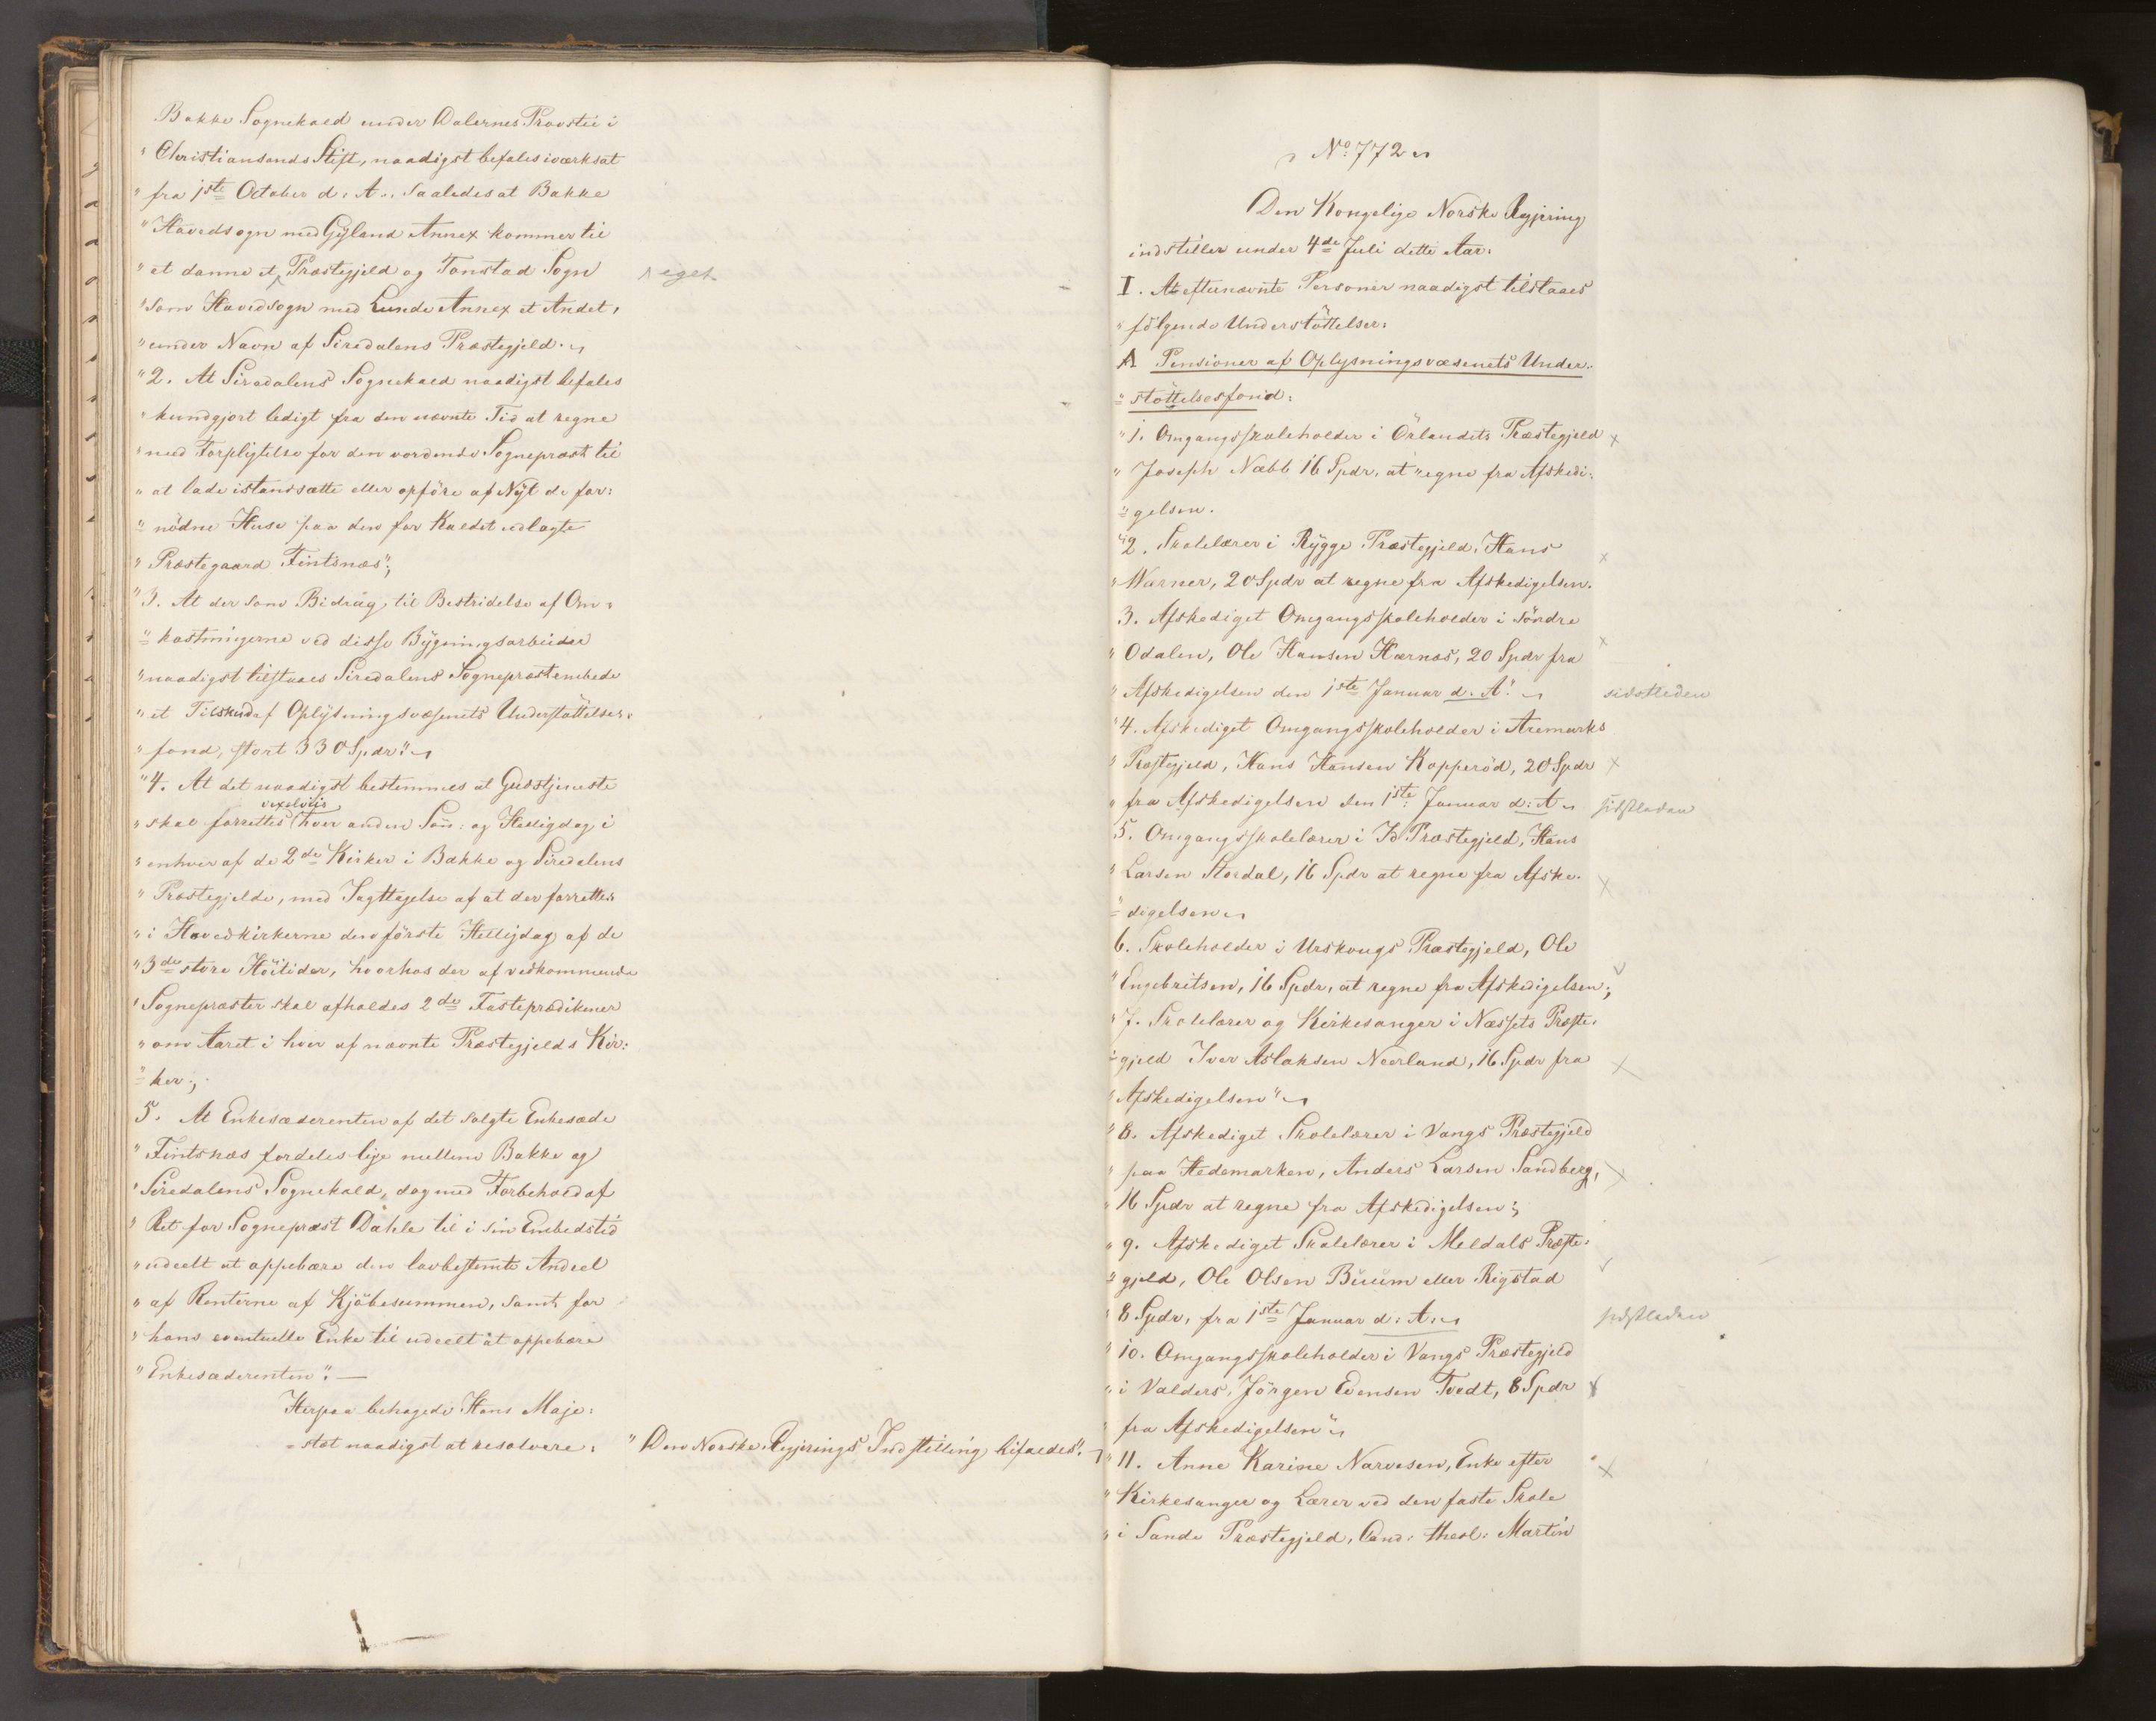 Bakke Sognekald under Dalernes Provstie i
" Christiansands Stift, naadigst befales iværksat
" fra 1ste October d: A:, saaledes at Bakke
" Hovedsogn med Gyland Annex kommer til
" at danne et Præstegjeld og Tonstad Sogn
eget
" som Hovedsogn med Lunde Annex et Andet,
" under Navn af Siredalens Præstegjeld.
" 2. At Siredalens Sognekald naadigst befales
" kundgjort ledigt fra den nævnte Tid at regne
" med Forpligtelse for den vordende Sognepræst til
" at lade istandsætte eller opföre af Nyt de for:
" nödne Huse paa den for Kaldet udlagte
" Præstegaard Fintsnæs";
" 3. At der som Bidrag til Bestridelse af Om:
" kostningerne ved disse Bygningsarbeider
" naadigst tilstaaes Siredalens Sognepræstembede
" et Tilskud af Oplysningsvæsenets Understöttelses:
" fond, stort 330 Spdr."
" 4. At det naadigst bestemmes at Gudstjeneste
vexelviis
" skal forrettes hver anden Søn: og Helligdag i
" enhver af de 2de Kirker i Bakke og Siredalens
" Præstegjelde, med Iagttagelse af at der forrettes
" i Hovedkirkerne den förste Helligdag af de
" 3de store Höitider, hvorhos der af vedkommende
" Sognepræster skal afholdes 2de Fasteprædikener
" om Aaret i hver af nævnte Præstegjelds Kir:
" ker;
5. At Enkesæderenten af det solgte Enkesæde
" Fintsnæs fordeles lige mellem Bakke og
" Siredalens Sognekald, dog med Forbehold af
" Ret for Sognepræst Dahle til i sin Embedstid
" udeelt at oppebære den lovbestemte Andeel
" af Renterne af Kjöbesummen, samt for
" hans eventuelle Enke til udeelt at oppebære
" Enkesæderenten". —
Herpaa behagede Hans Maje:
= stæt naadigst at resolvere:
" Den Norske Regjerings Indstilling bifaldes".
No: 772
Den Kongelige Norske Regjering
indstiller under 4de Juli dette Aar:
I. At efternævnte Personer naadigst tilstaaes
" fölgende Understöttelser:
A Pensioner af Oplysningsvæsenets Under:
= stöttelsesfond:
" 1. Omgangsskoleholder i Örlandets Præstegjeld
" Joseph Næbb 16 Spdr, at regne fra Afskedi:
= gelsen.
" 2. Skolelærer i Rygge Præstegjeld, Hans
" Warner, 20 Spdr at regne fra Afskedigelsen.
3. Afskediget Omgangsskoleholder i Söndre
" Odalen, Ole Hansen Hærnæs, 20 Spdr fra
" Afskedigelsen den 1ste Januar d: A:
sidstleden
" 4. Afskediget Omgangsskoleholder i Aremarks
" Præstegjeld, Hans Hansen Kopperöd, 20 Spdr
" fra Afskedigelsen den 1ste Januar d: A
sidstleden
5. Omgangsskolelærer i Id Præstegjeld, Hans
" Larsen Stordal, 16 Spdr at regne fra Afske:
= digelsen
6. Skoleholder i Urskougs Præstegjeld, Ole
" Engebritsen, 16 Spdr, at regne fra Afskedigelsen;
" 7. Skolelærer og Kirkesanger i Næssets Præste:
= gjeld Iver Aslaksen Neerland, 16 Spdr fra
" Afskedigelsen"
" 8. Afskediget Skolelærer i Vangs Præstegjeld
" paa Hedemarken, Anders Larsen Sandberg,
" 16 Spdr at regne fra Afskedigelsen;
" 9. Afskediget Skolelærer i Meldals Præste:
= gjeld, Ole Olsen Buum eller Rigstad
" 8 Spdr, fra 1ste Januar d: A:
sidstleden
" 10. Omgangsskoleholder i Vangs Præstegjeld
" i Valders, Jörgen Evensen Tvedt, 8 Spdr
" fra Afskedigelsen"
" 11. Anne Karine Narvesen, Enke efter
" Kirkesanger og Lærer ved den faste Skole
" i Sande Præstegjeld, Cand: theol: Martin